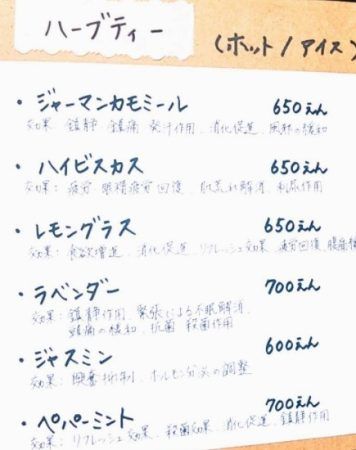 ハーブティー
(ホット/アイス)
・ジャーマンカモミール 650えん
効果 鎮静 鎮痛 発汗作用、消化促進、風邪の緩和
・ハイビスカス 650えん
効果: 疲労 眼精疲労回復、肌荒れ解消、利尿作用
・レモングラス 650えん
効果: 食欲増進、消化促進、リフレッシュ効果、疲労回復、腹痛
・ラベンダー 700えん
効果: 鎮静作用、緊張による不眠解消、
頭痛の緩和、抗菌 殺菌作用
・ジャスミン 600えん
効果: 興奮抑制、ホルモン分泌の調整
・ペパーミント 700えん
効果: リフレッシュ効果、殺菌効果、消化促進、鎮静作用